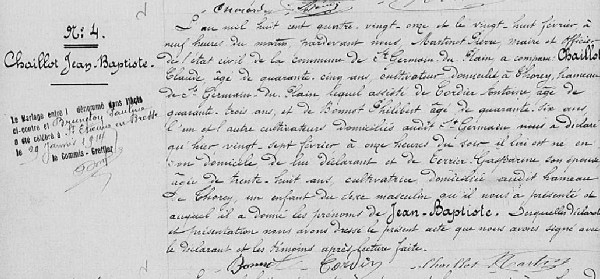 N: 4.
Chaillot Jean-Baptiste.
Le Mariage entre l dénommé dans l'acte
ci-contre et Brunelou
a été célébré à St Etienne en Bresse
le 29 Janvier 1911
le Commis-Greffier
L'an mil huit cent quatre-vingt onze et le vingt huit février à
neuf heures du matin, pardevant nous, Martinot Pierre, maire et officier
de l'état civil de la Commune de St Germain du Plain a comparu Chaillot
Claude âgé de quarante-cinq ans, cultivateur domicilié à Thorey, hameau
de St Germain-du-Plain lequel assisté de Cordier Antoine âgé de
quarante-trois ans, et de Bonnot Philibert âgé de quarante-six ans
l'un et l'autre cultivateurs domiciliés audit St Germain nous a déclaré
qu'hier vingt-sept février à onze heures du soir, il lui est né en
son domicile de lui déclarant et de Terrier Gasparine son épouse
âgée de trente-huit ans, cultivatrice domiciliée audit hameau
de Thorey, un enfant du sexe masculin qu'il nous a présenté et
auquel il a donné les prénoms de Jean-Baptiste. Desquelles déclaration
et présentation nous avons dressé le présent acte que nous avons signé avec
le déclarant et les témoins après lecture faite.
Bonnot Cordier Chaillot Martinot